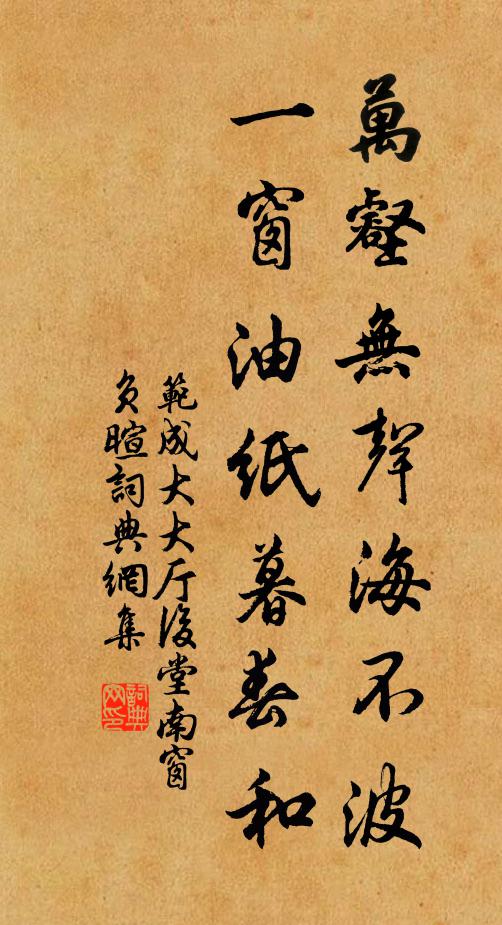 萬壑無聲海不波
一窗油紙暮春和
範成大大厅後堂南窗
負暄詞典網集
詞典网印